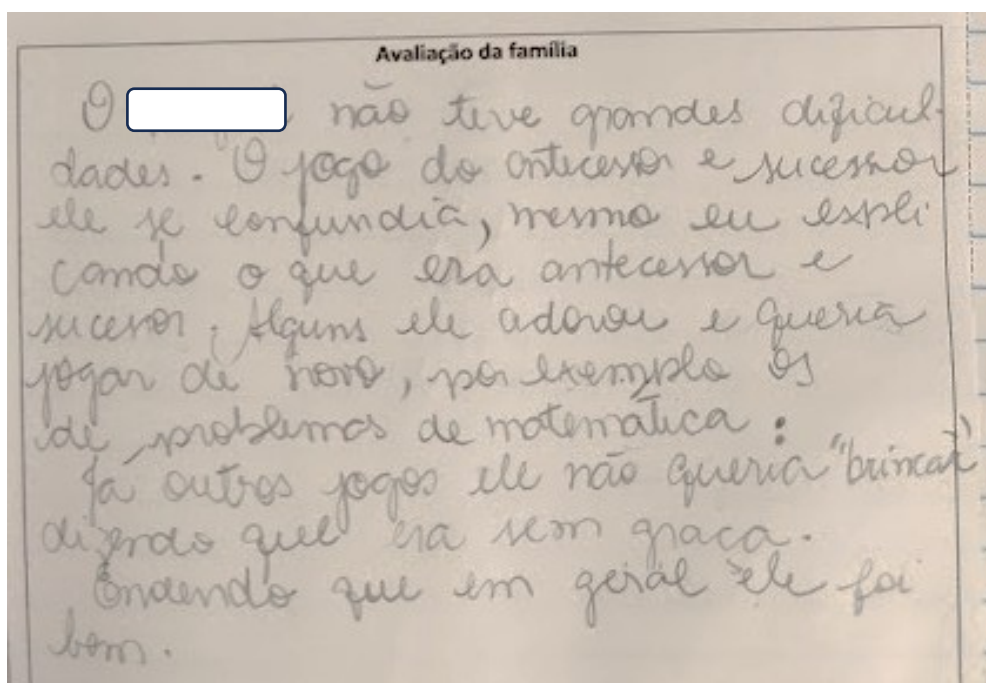 Avaliação da família
O não teve grandes dificul-
dades. O jogo do antecessor e sucessor
ele se confundia, mesmo eu expli
cando o que era antecessor e
sucessor. Alguns ele adorou e queria
jogar de novo, por exemplo os
de problemas de matemática.
Já outros jogos ele não queria "brincar"
dizendo que era sem graça.
Endendo que em geral ele foi
bem.